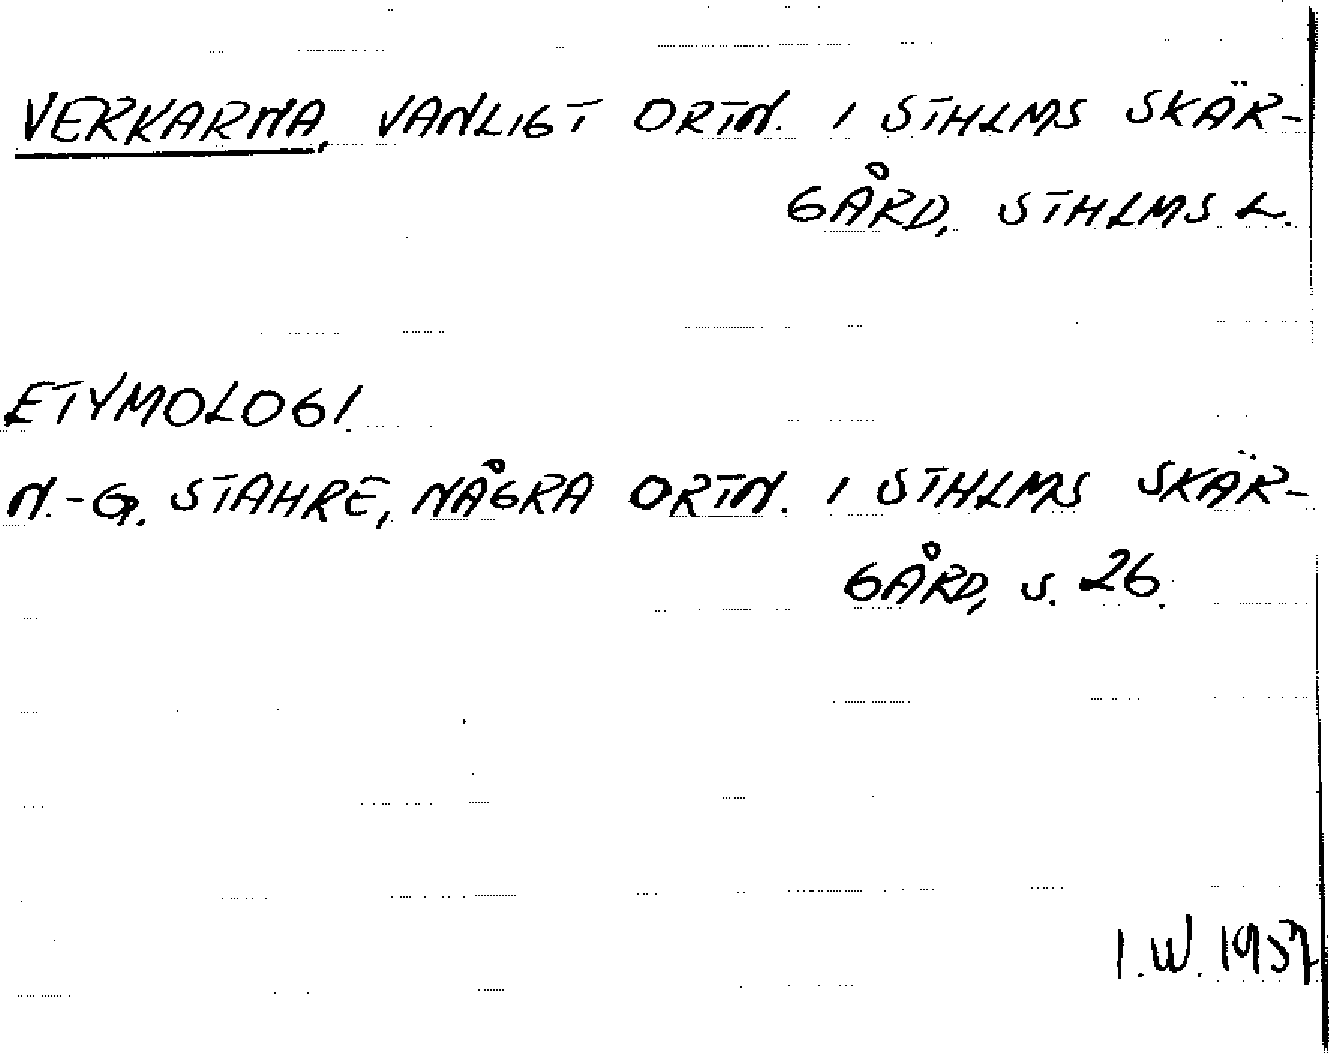 VERKARNA, VANLIGT ORTN. I STHLMS SKÄR-
GÅRD, STHLMS L.
ETYMOLOGI
N.-G. STAHRE, NÅGRA ORTN. I STHLMS SKÄR-
GÅRD, S. 26.
I.W. 1957